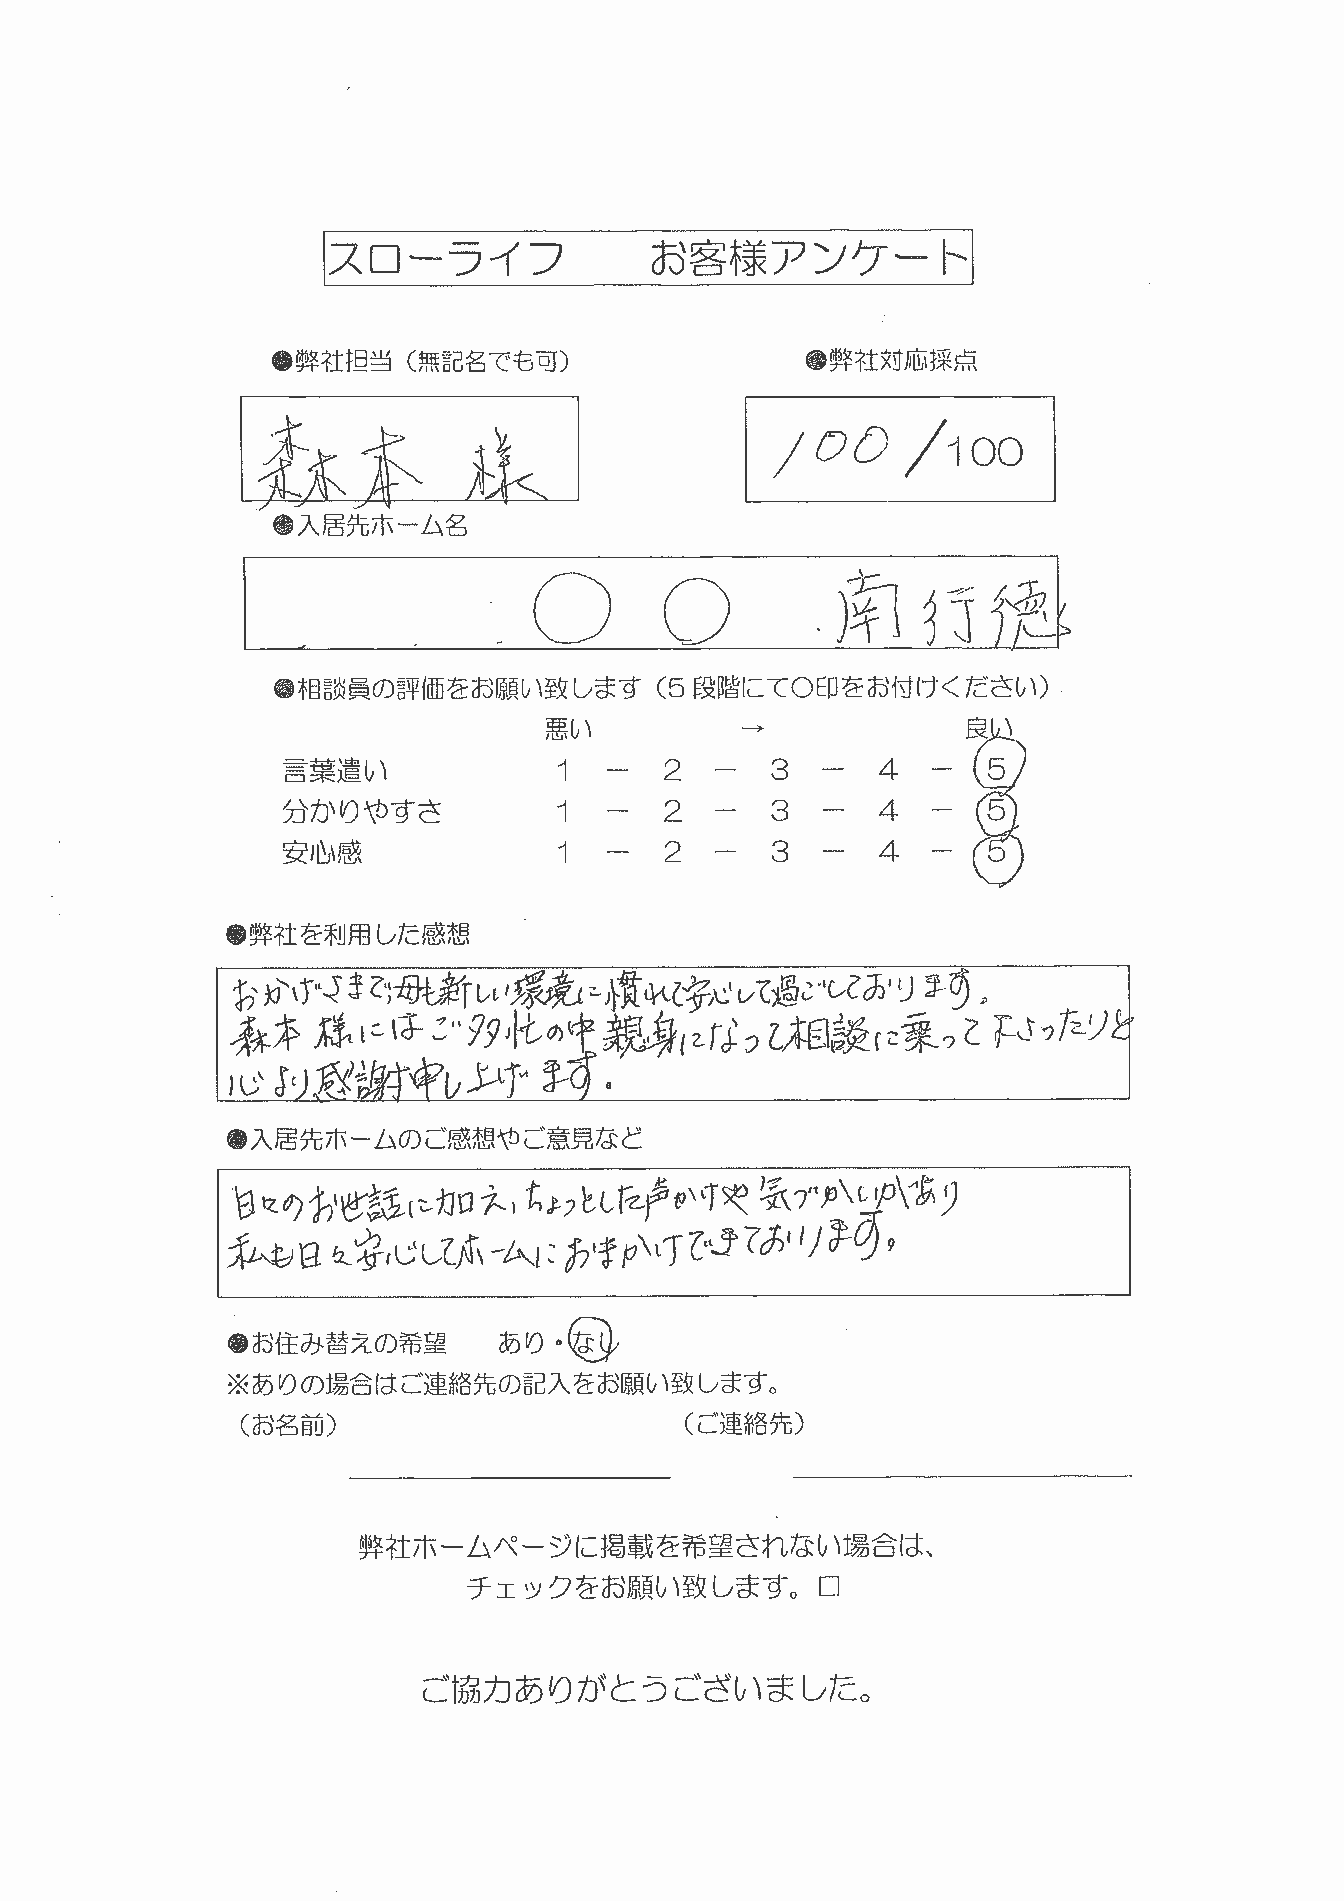 スローライフ　　お客様アンケート
●弊社担当（無記名でも可）　　●弊社対応採点
森本 様　　100/100
●入居先ホーム名
〇 〇 南行徳
●相談員の評価をお願い致します（5段階にて〇印をお付けください）
悪い　　→　　良い
言葉遣い　1 － 2 － 3 － 4 － 5
分かりやすさ　1 － 2 － 3 － 4 － 5
安心感　1 － 2 － 3 － 4 － 5
●弊社を利用した感想
おかげさまで母も新しい環境に慣れて安心して過ごしております。
森本 様にはご多忙の中親身になって相談に乗って下さったりと
心より感謝申し上げます。
●入居先ホームのご感想やご意見など
日々のお世話に加え、ちょっとした声かけや気づかいがあり
私も日々安心してホームにおまかけできております。
●お住み替えの希望　　あり・なし
※ありの場合はご連絡先の記入をお願い致します。
（お名前）　　（ご連絡先）
弊社ホームページに掲載を希望されない場合は、
チェックをお願い致します。□
ご協力ありがとうございました。